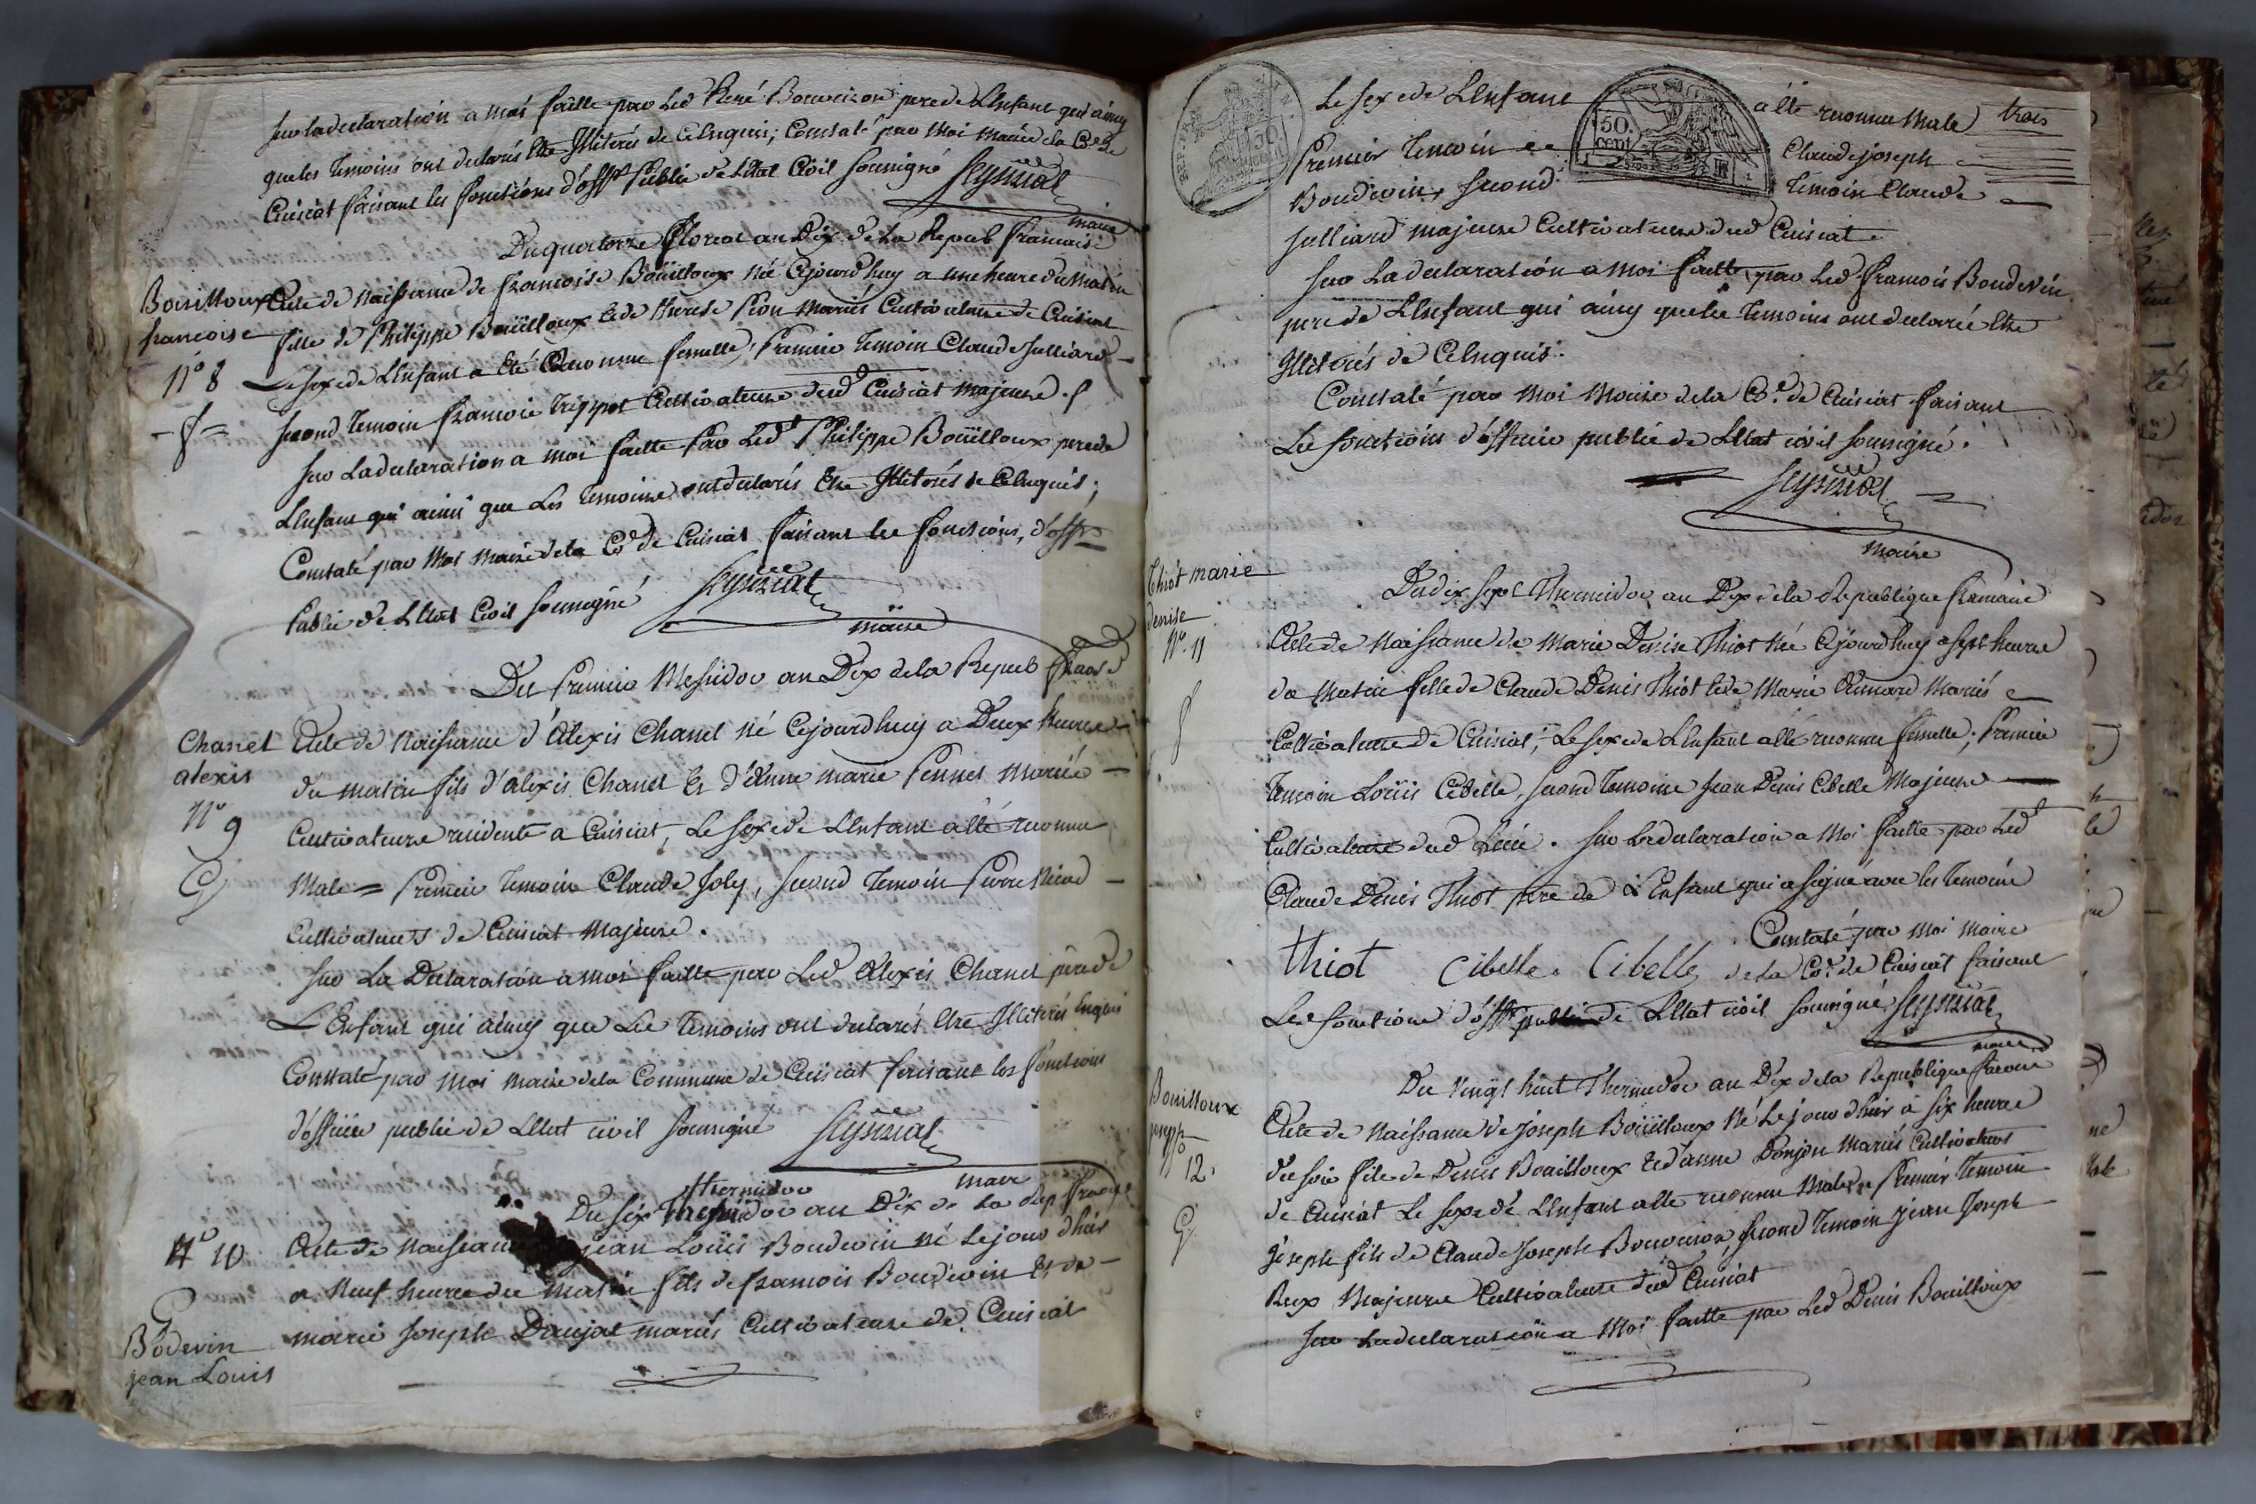 sur la declaration a moi faitte par Led René Bouvoison pere de LEnfant qui ainsy
que les Temoins ont declarés Etre Illiterés de Ce Enquis; Constaté par Moi maire de la Cne de
Cuisiat faisant les fonctions d'offr Public de L'Etat Civil Soussigné
maire
Du quatorze floreal an Dix de La Repub francaise
Bouilloux
francoise
N° 8
Acte de Naissance de francoise Boüilloux Né Cejourd'huy a une heure du Matin
fille de Philippe Boüilloux et de therese Pion Mariés Cultivateurs de Cuisiat
Le sexe de LEnfant a Eté Reconnu femelle, Premier Temoin Claude Julliard
Second Temoin francois Trippot Cultivateurs dud Cuisiat Majeurs.
sur La declaration a moi faitte Par Led Philippe Boüilloux pere de
LEnfant qui ainsi que Les temoins ont declarés Etre Illiterés de Ce Enquis;
Constaté par Moi maire de la Co de Cuisiat faisant les fonctions d'offr
Public de LEtat Civil Soussigné
maire
Du Premier Messidor an Dix de la Repub
Chanel
alexis
N° 9
G
Acte de Naissance d'Alexis Chanel Né Cejourd'huy a Deux heures
du matin fils d'alexis Chanel Et d'Anne marie Pennet Mariés
Cultivateurs residents a Cuisiat, Le sexe de LEnfant a Eté reconnu
Male = Premier Temoin Claude Joly, Second Temoin Pierre Nicod
Cultivateurs de Cuisiat Majeurs.
sur La Declaration a moi faitte par Led Alexis Chanel pere de
L'Enfant qui ainsy que Les Temoins ont declarés Etre Illiterés Enquis
Constaté par moi maire de la Commune de Cuisiat faisant les fonctions
d'officier public de LEtat civil Soussigné
maire
thermidor
Du Six Thermidor an Dix de la Rep
N° 10
G
Bodevin
jean Louis
Acte de Naissance jean Loüis Boudevin Né Le jour d'hier
a Neuf heures du Matin fils de francois Boudevin Et de
marie Joseph Daujat mariés Cultivateurs de Cuisiat
Le sexe de LEnfant a Eté reconnu Male trois
50. cent
Premier Temoin Claude joseph
Boudevin, Second Temoin Claude
Julliard majeurs Cultivateurs dud Cuisiat
sur La declaration a Moi faitte par Led francois Boudevin
pere de LEnfant qui ainsy que les Temoins ont declarés Etre
Illiterés de Ce Enquis.
Constaté par Moi Maire de la Co. de Cuisiat faisant
Les fonctions d'officier public de LEtat civil Soussigné.
Maire
Thiot marie
denise
N° 11
Du dix sept Thermidor an Dix de la Republique francaise
Acte de Naissance de Marie Denise Thiot Né Cejourd'huy a sept heures
du Matin fille de Claude Denis Thiot et de Marie Mariés
Cultivateurs de Cuisiat; Le sexe de LEnfant a Eté reconnu femelle; Premier
Temoin Loüis Cibelle, Second Temoin Jean Denis Cibelle Majeurs
Cultivateurs dud Lieu. sur La declaration a Moi faitte par Led
Claude Denis Thiot Pere de L'Enfant qui a signé avec les Temoins
Constaté par Moi maire
thiot Cibelle. Cibelle de la Co. de Cuisiat faisant
Les fonctions d'offr public de LEtat civil Soussigné
maire
Bouilloux
joseph
N° 12
G
Du Vingt huit Thermidor an Dix de la Republique
Acte de Naissance de Joseph Boüilloux Né Le jour d'hier à six heures
du Soir fils de Denis Bouilloux Et d'anne Donjon Mariés Cultivateurs
de Cuisiat Le sexe de LEnfant a Eté reconnu Male Premier Temoin
Joseph fils de Claude Joseph Bouvoison, Second Temoin Jean Joseph
Roux Majeurs Cultivateurs dud Cuisiat
sur La declaration a Moi faitte par Led Denis Bouilloux